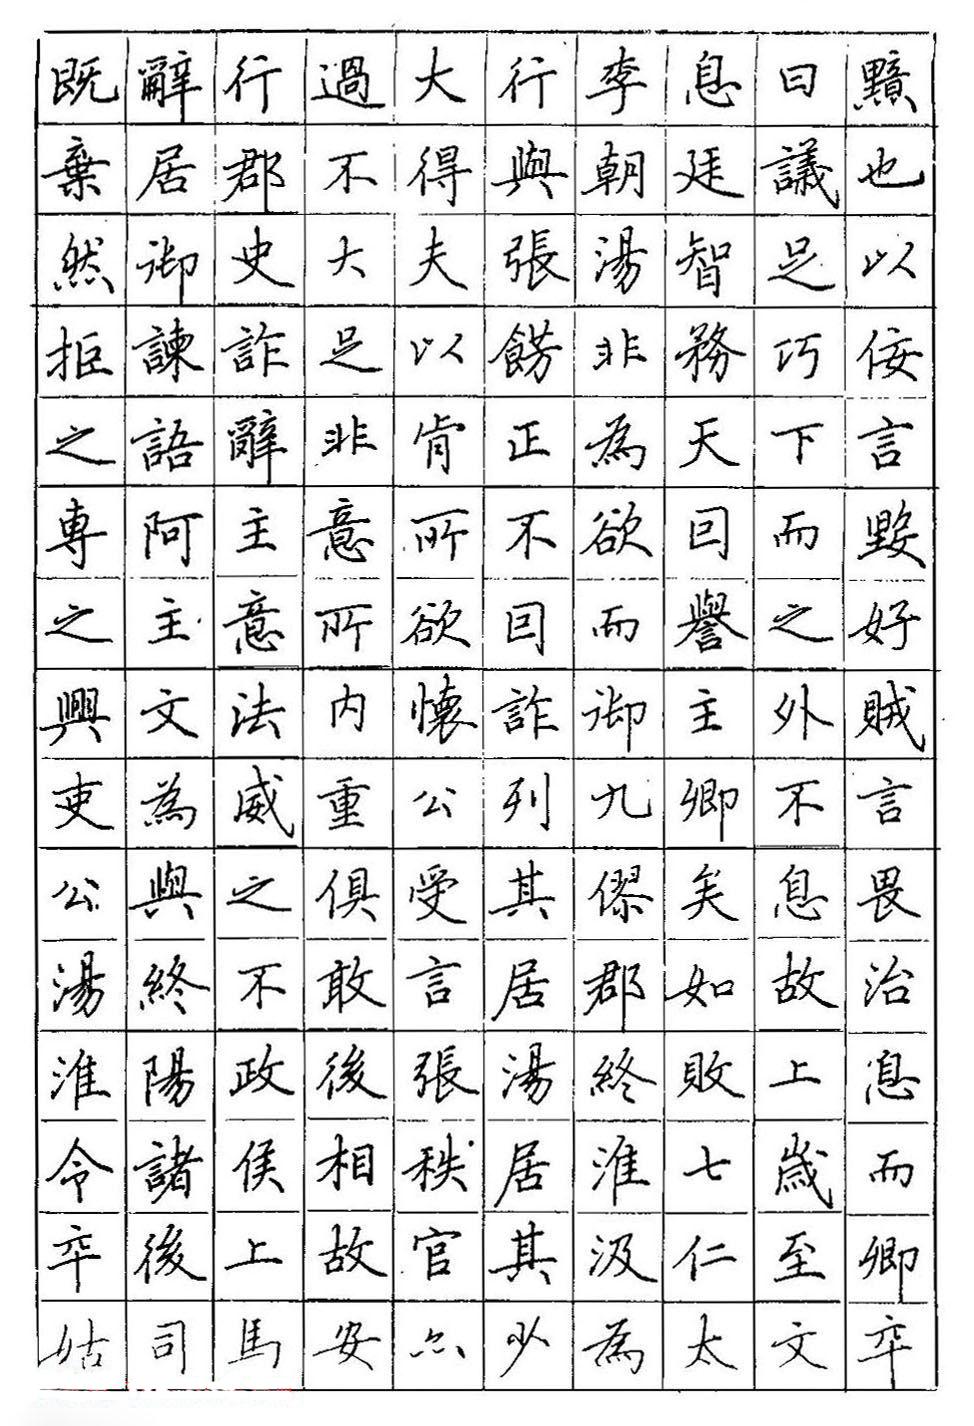 既辭行過大行李息曰黯
棄居郡不得與朝廷議也
然御史大夫張湯智足以
拒諫詐足以餝非務巧佞
之語辭非肯正為天下言
專阿主意所不欲回而毀
之主意所欲回而譽之好
興文法內懷詐御主外賊
吏為威重公列九卿不言
公與之俱受其僇矣息畏
湯終不敢言居郡如故治
淮陽政後張湯終敗上息
令諸侯相秩居淮七歲而
卒後上故官其汲仁至卿
姑司馬安亦少為太文卒